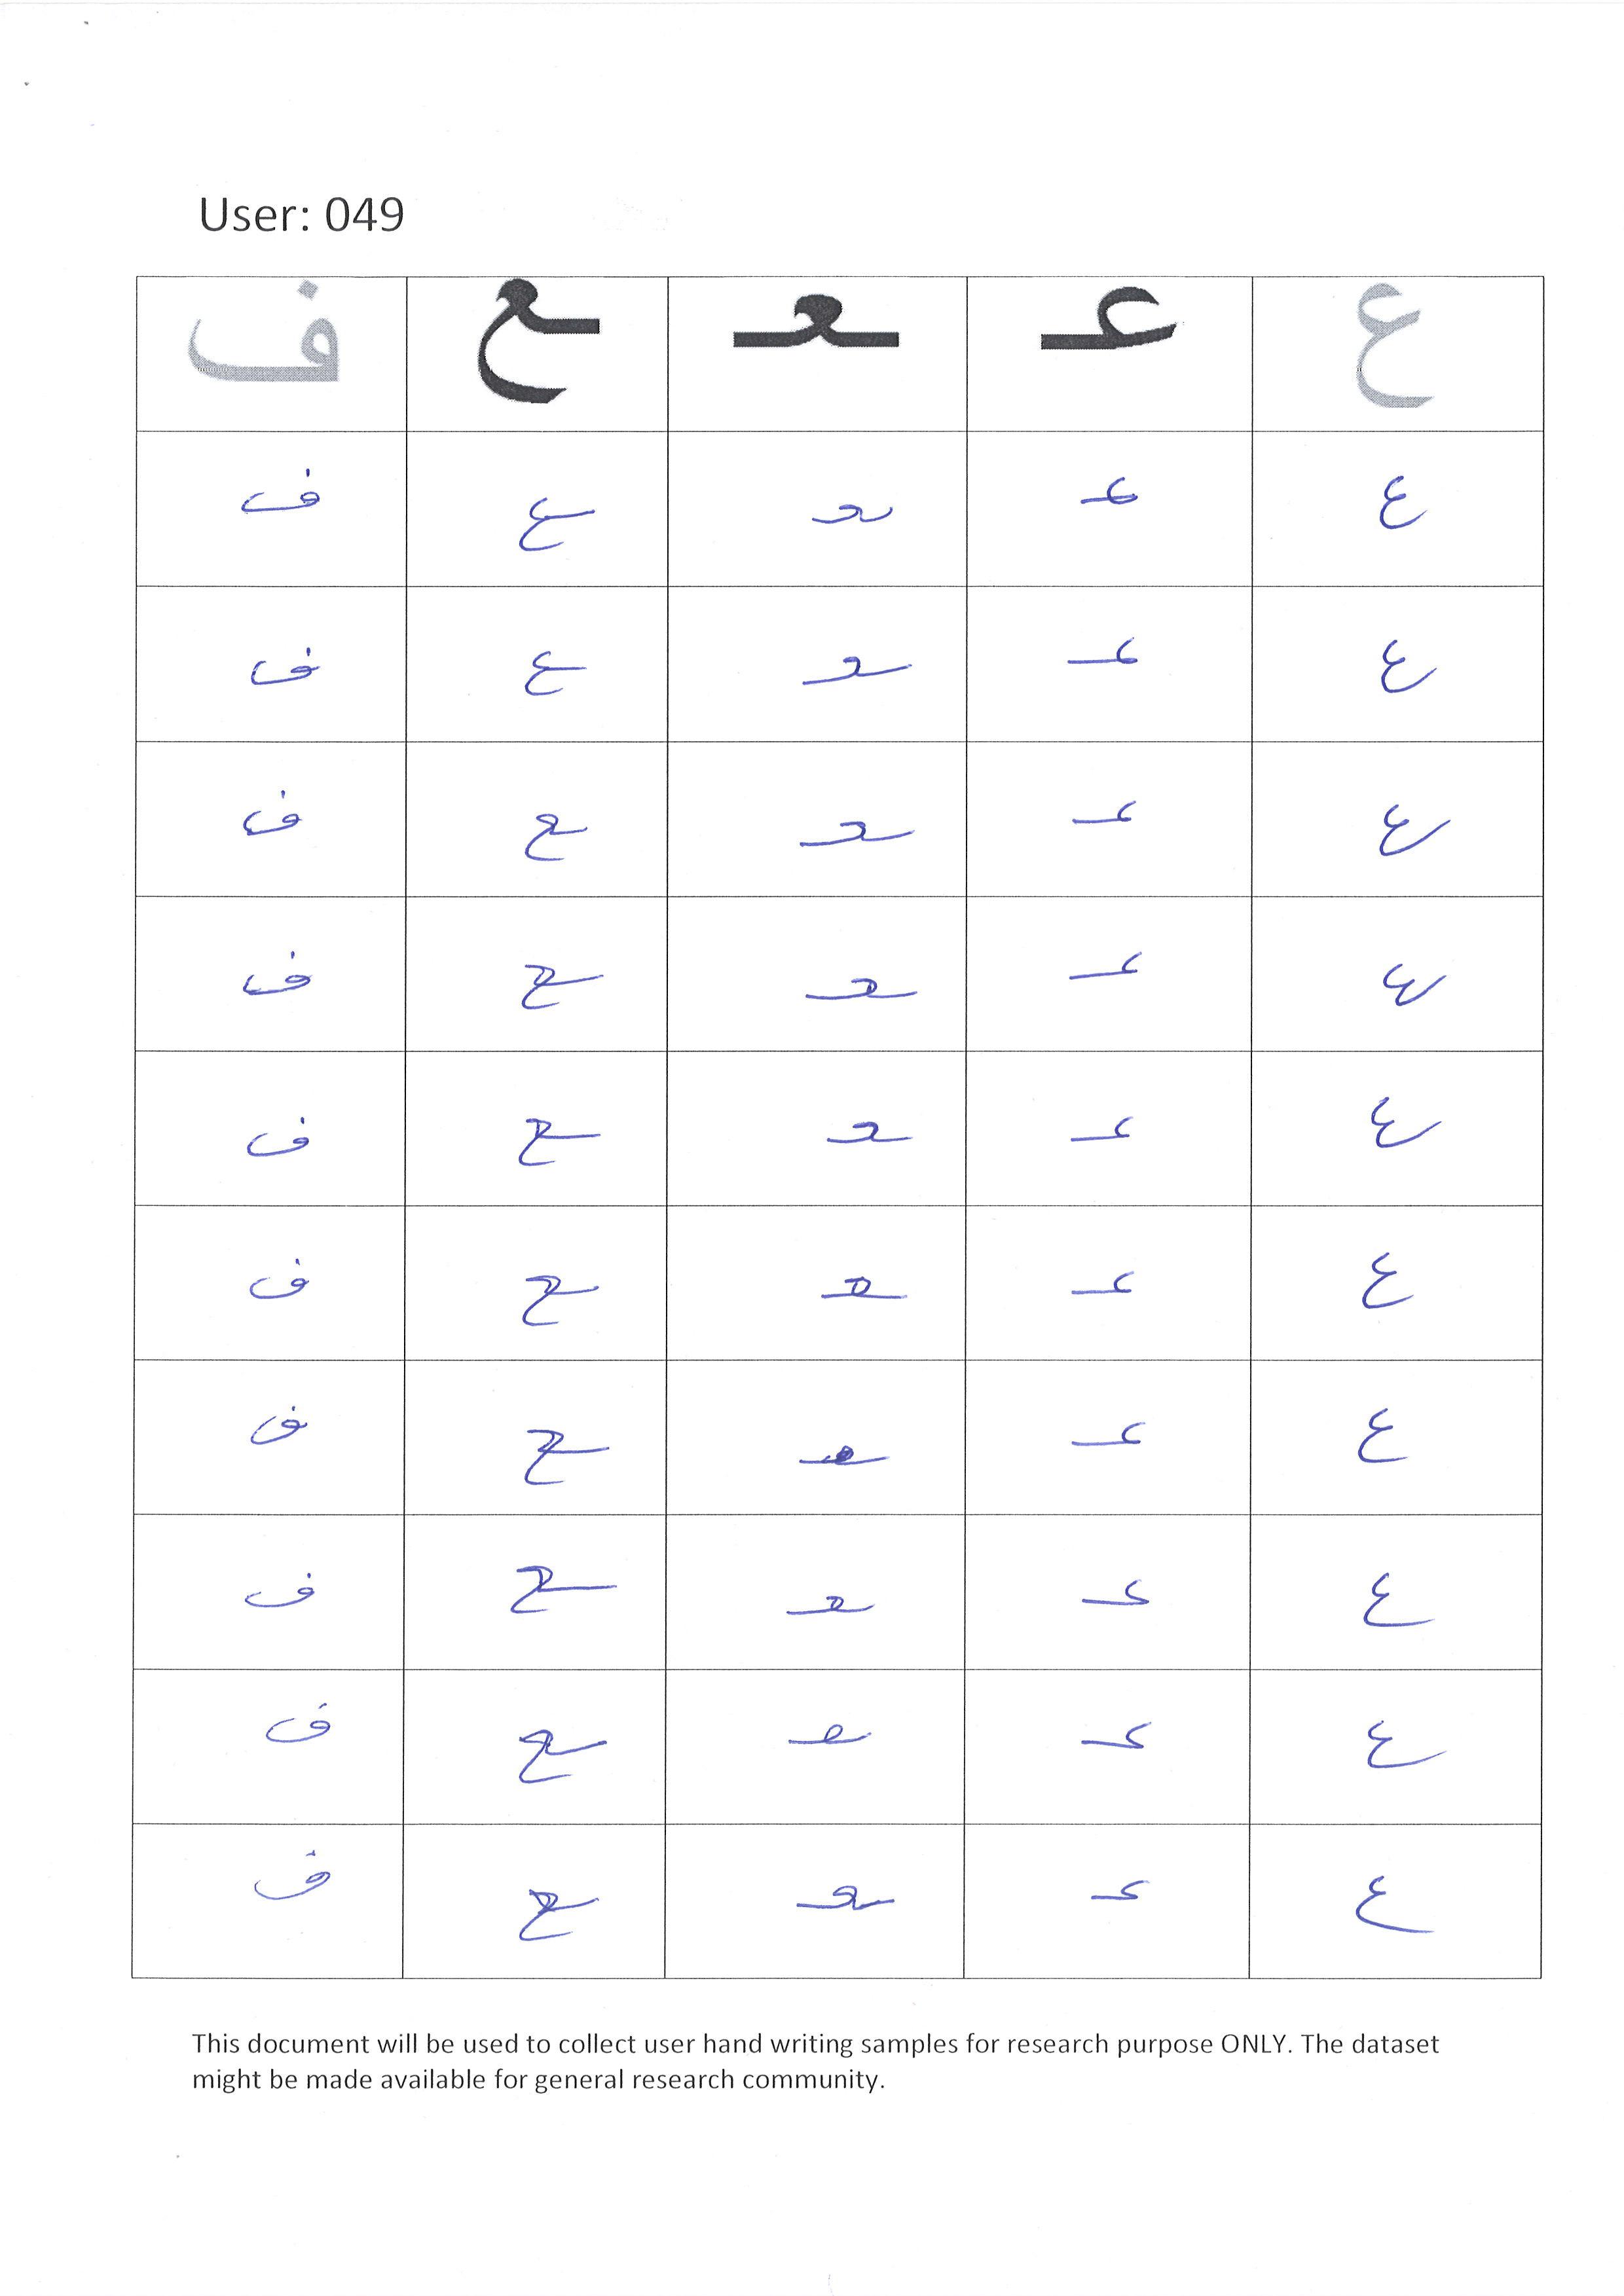 User: 049
ع عـ ـعـ ـع ف
ع عـ ـعـ ـع ف
ع عـ ـعـ ـع ف
ع عـ ـعـ ـع ف
ع عـ ـعـ ـع ف
ع عـ ـعـ ـع ف
ع عـ ـعـ ـع ف
ع عـ ـعـ ـع ف
ع عـ ـعـ ـع ف
ع عـ ـعـ ـع ف
ع عـ ـعـ ـع ف
This document will be used to collect user hand writing samples for research purpose ONLY. The dataset
might be made available for general research community.